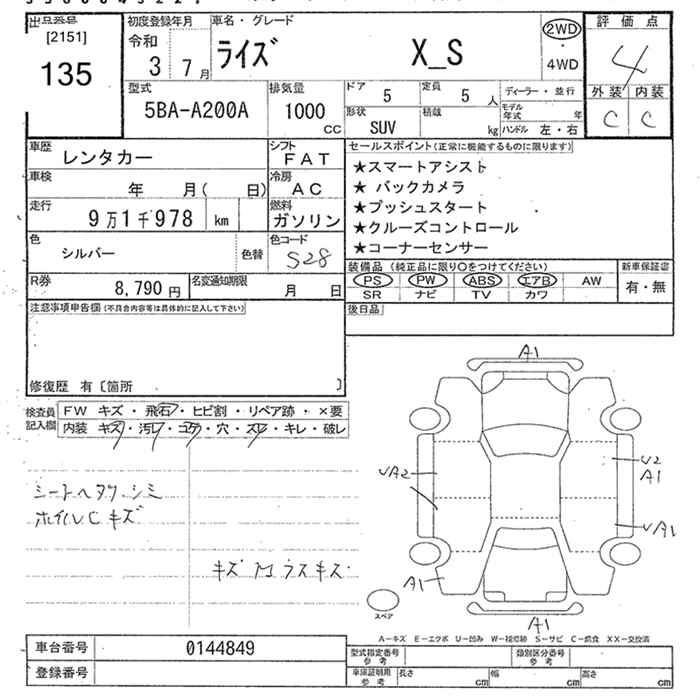 出品番号
[2151]
135
初度登録年月
令和
3 7月
車名・グレード
ライズ X_S
2WD
・
4WD
評価点
4
外装 内装
C C
型式
5BA-A200A
排気量
1000
CC
ドア
5
定員
5 人
形状
SUV
積載
kg
ディーラー・並行
モデル年式 年
ハンドル 左・右
車歴
レンタカー
シフト
FAT
車検
年 月( 日)
冷房
AC
走行
9万1千978 km
燃料
ガソリン
色
シルバー
色替
色コード
S28
R券
8,790 円
名変通知期限
月 日
セールスポイント(正常に機能するものに限ります)
★スマートアシスト
★バックカメラ
★プッシュスタート
★クルーズコントロール
★コーナーセンサー
装備品(純正品に限り○をつけてください)
PS PW ABS エアB AW
SR ナビ TV カワ
新車保証書
有・無
後日品
注意事項申告欄(不具合内容等は具体的に記入して下さい)
修復歴 有〔箇所 〕
検査員記入欄
FW キズ・飛石・ヒビ割・リペア跡・×要
内装 キズ・汚レ・コゲ・穴・スレ・キレ・破レ
シートヘタリ.シミ
ホイルCキズ
キズ
A1
UA2
U2
A1
UA1
A1
A1
スペア
A-キズ E-エクボ U-凹み W-補修跡 S-サビ C-腐食 XX-交換済
車台番号
0144849
登録番号
型式指定番号
参考
類別区分番号
参考
車庫証明用
参考
長さ cm
幅 cm
高さ cm